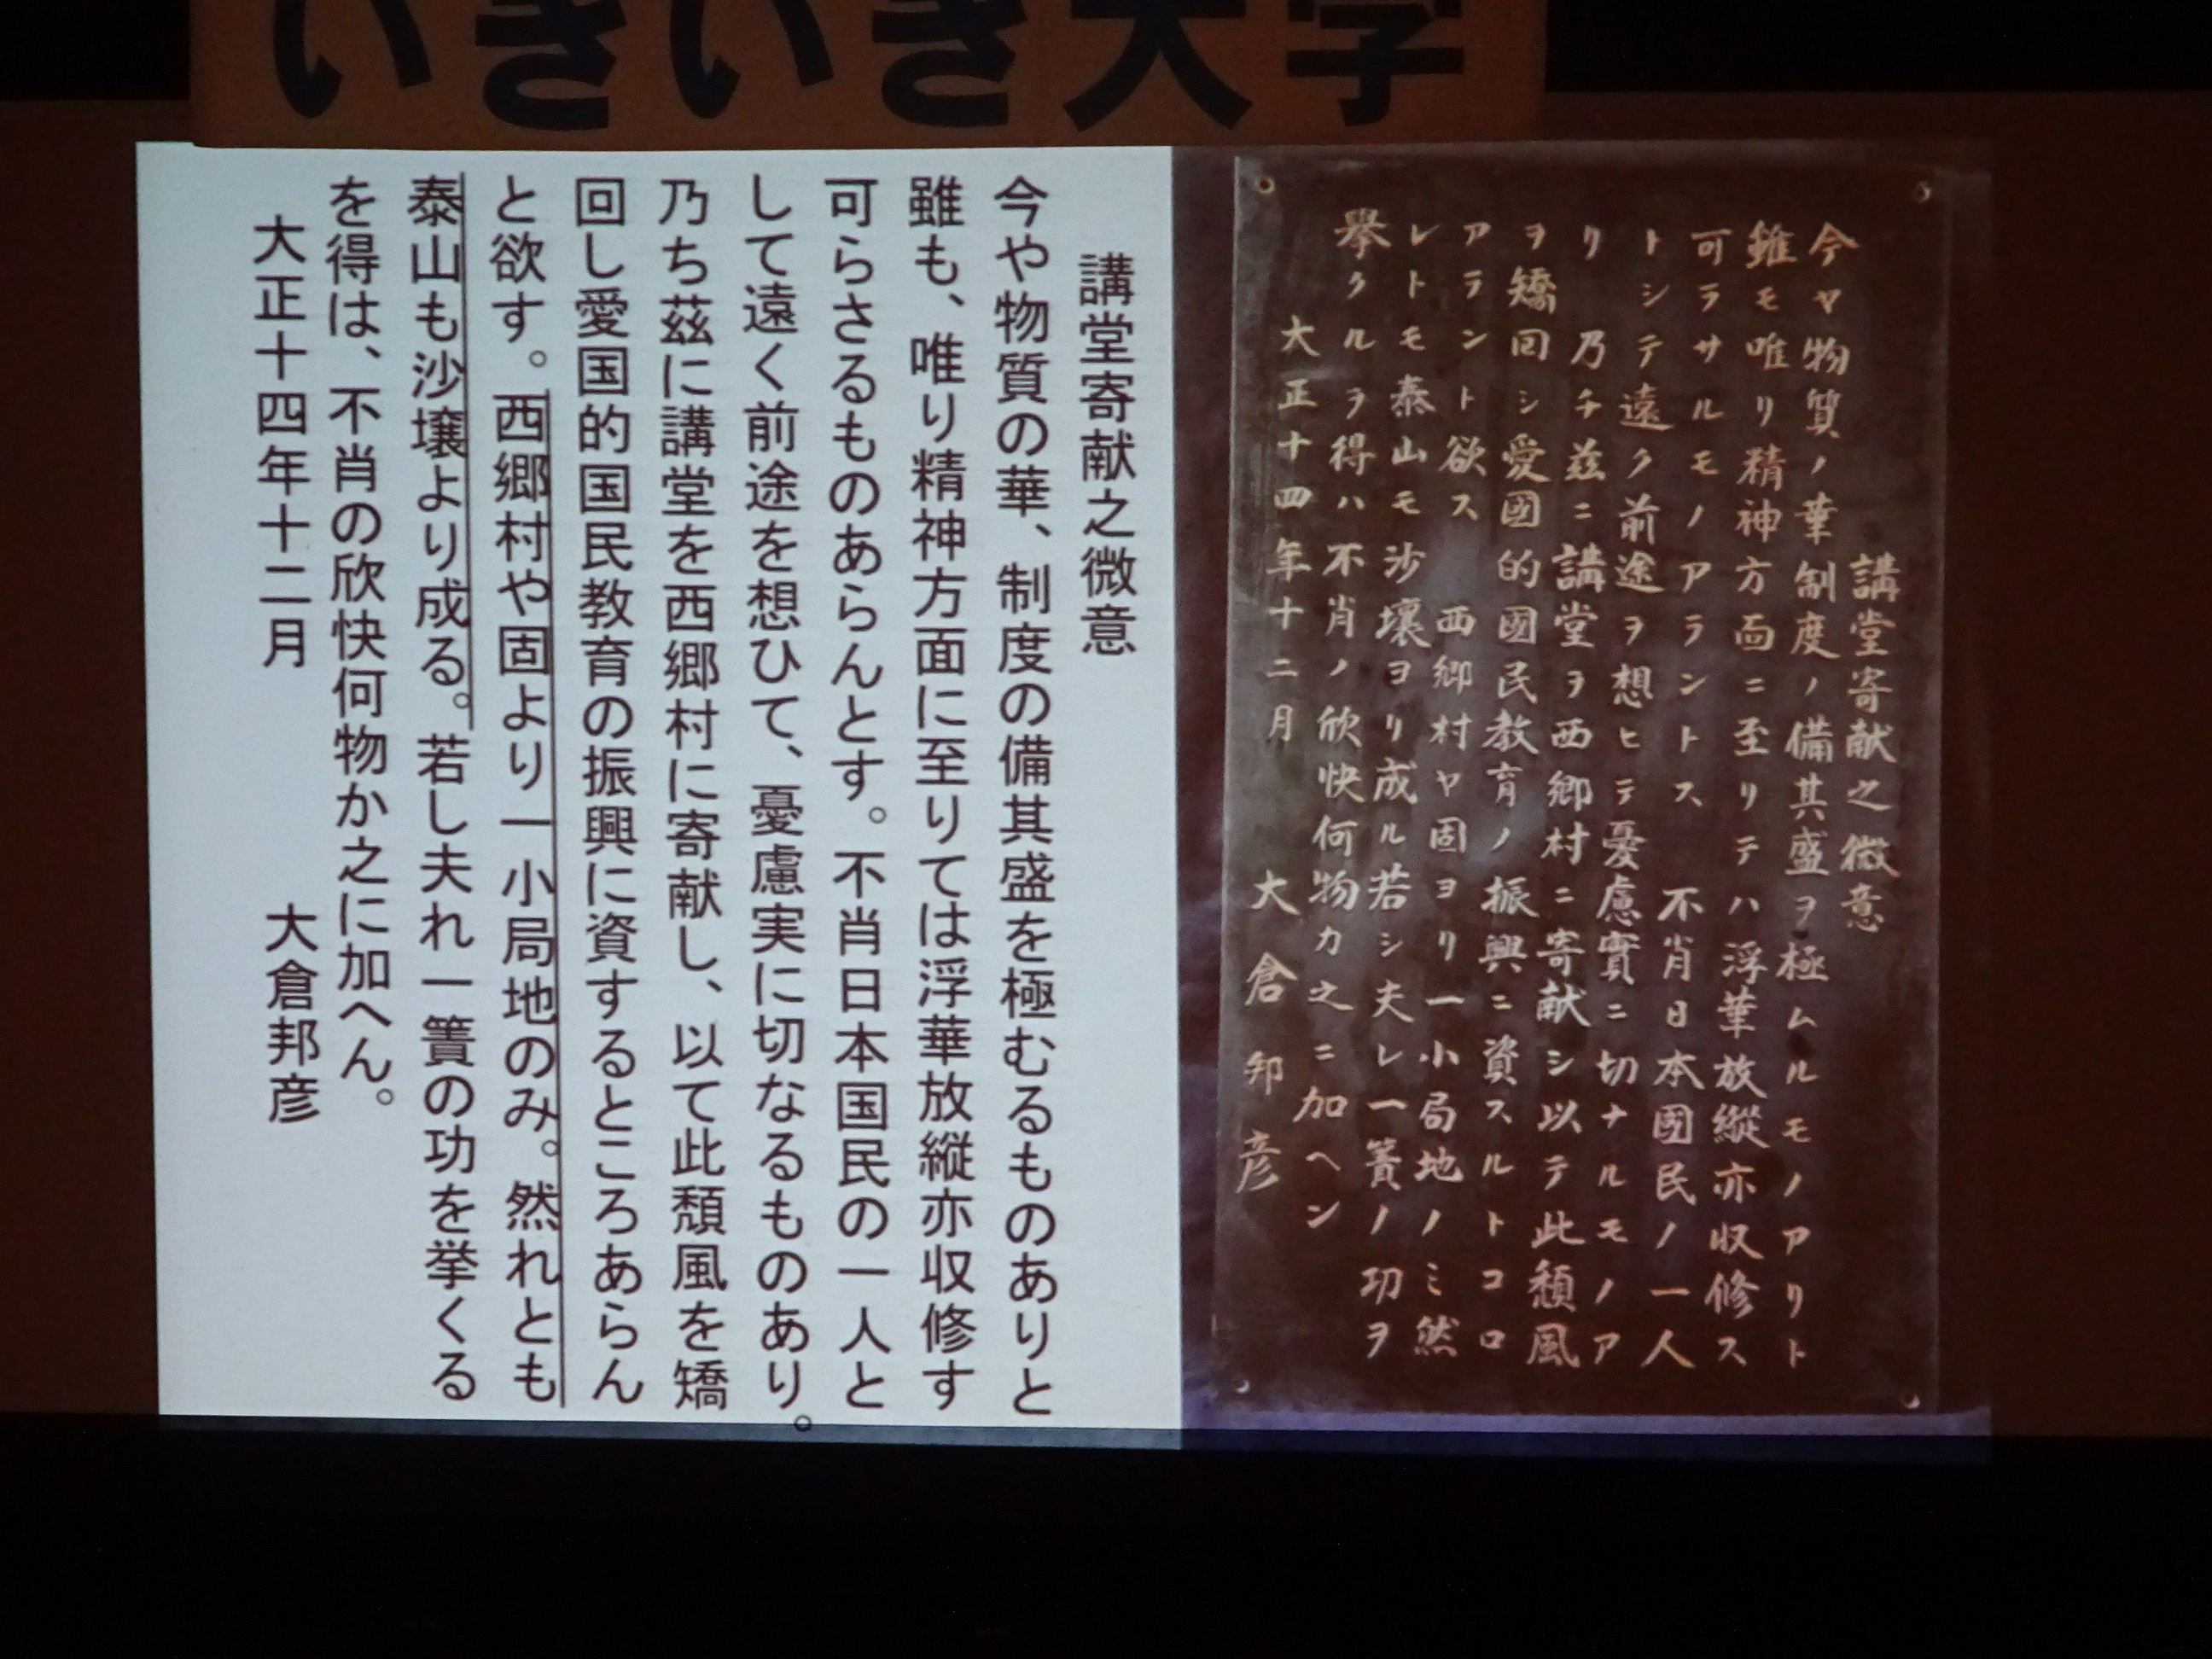 いきいき大学
講堂寄献之微意
今ヤ物質ノ華制度ノ備其盛ヲ極ムルモノアリト
雖モ唯リ精神方面ニ至リテハ浮華放縱亦収修ス
可ラサルモノアラントス 不肖日本國民ノ一人
トシテ遠ク前途ヲ想ヒテ憂慮實ニ切ナルモノア
リ 乃チ茲ニ講堂ヲ西郷村ニ寄献シ以テ此頽風
ヲ矯回シ愛國的國民教育ノ振興ニ資スルトコロ
アラント欲ス 西郷村ヤ固ヨリ一小局地ノミ然
レトモ泰山モ沙壤ヨリ成ル若シ夫レ一簣ノ功ヲ
擧クルヲ得ハ不肖ノ欣快何物カ之ニ加ヘン
大正十四年十二月 大倉邦彦
講堂寄献之微意
今や物質の華、制度の備其盛を極むるものありと
雖も、唯り精神方面に至りては浮華放縦亦収修す
可らさるものあらんとす。不肖日本国民の一人と
して遠く前途を想ひて、憂慮実に切なるものあり。
乃ち茲に講堂を西郷村に寄献し、以て此頽風を矯
回し愛国的国民教育の振興に資するところあらん
と欲す。西郷村や固より一小局地のみ。然れとも
泰山も沙壌より成る。若し夫れ一簣の功を挙くる
を得は、不肖の欣快何物か之に加へん。
大正十四年十二月 大倉邦彦